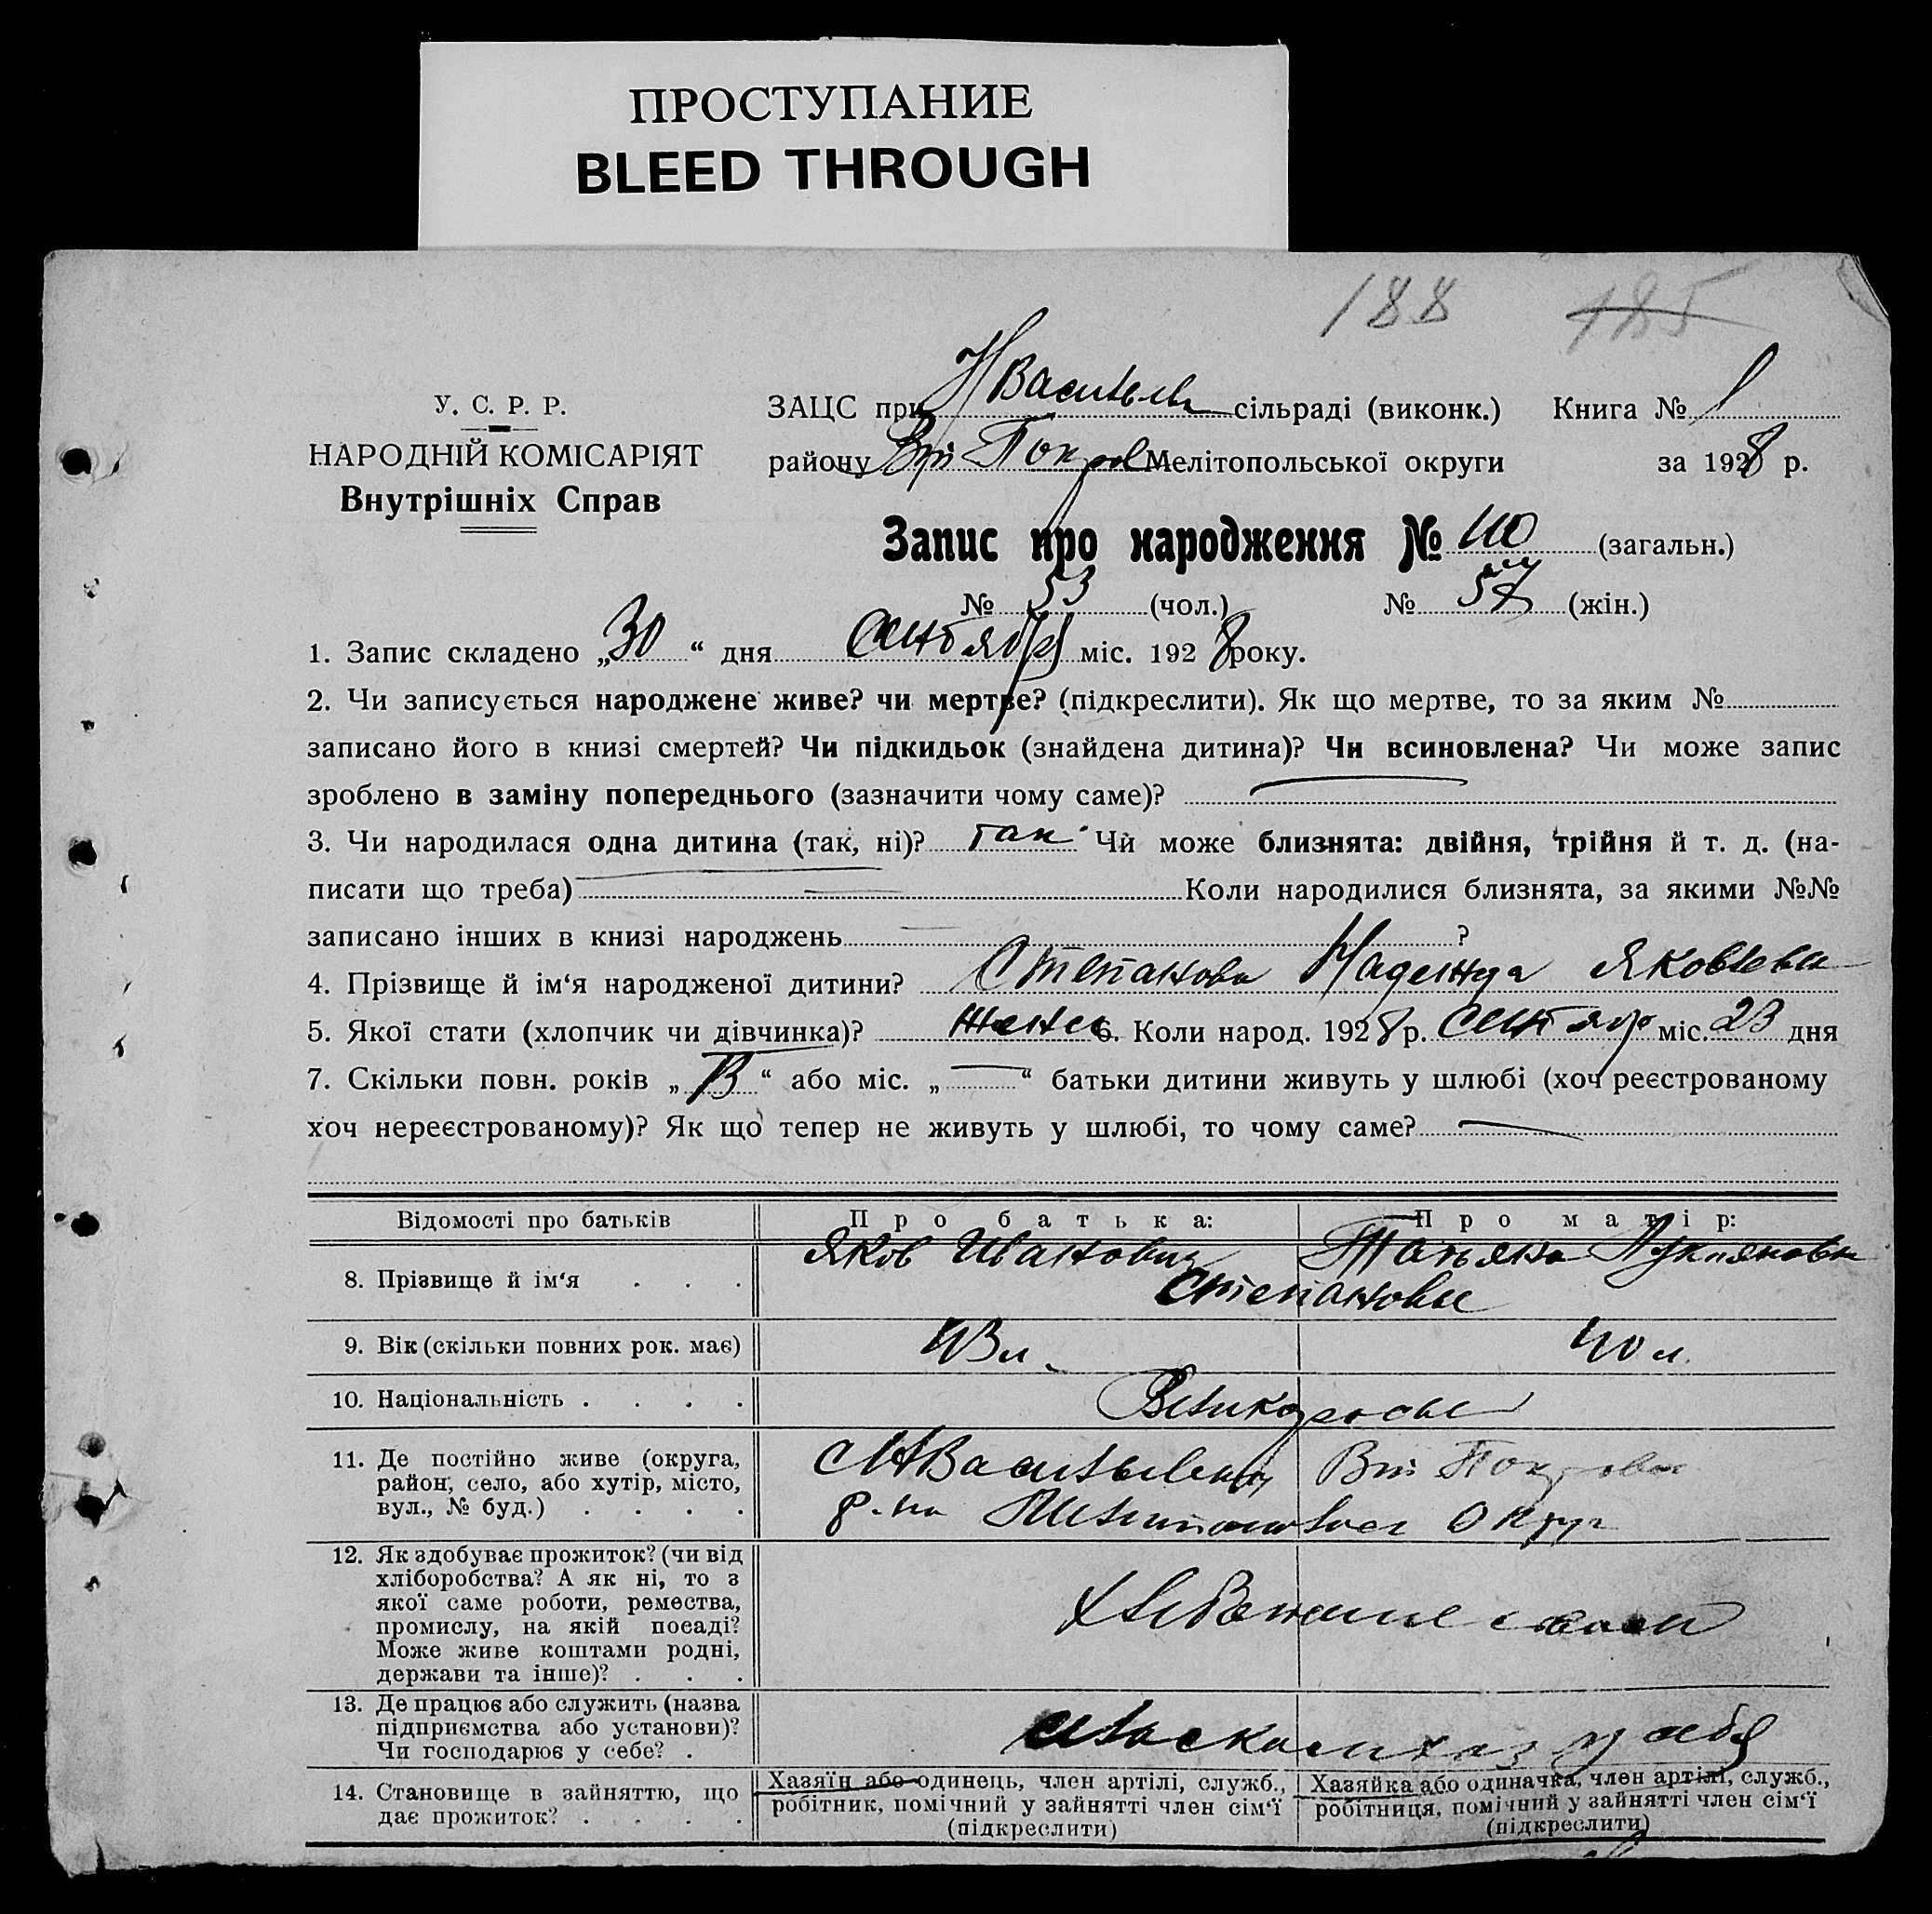 ПРОСТУПАНИЕ
BLEED THROUGH
188 185
У. С. Р. Р.
НАРОДНІЙ КОМІСАРІЯТ
Внутрішніх Справ
ЗАЦС при НВасильев сільраді (виконк.) Книга № 1
району Вт Покров Мелітопольської округи за 1928 р.
Запис про народження № 110 (загальн.)
№ 53 (чол.) № 57 (жін.)
1. Запис складено „30“ дня Сентября міс. 1928 року.
2. Чи записується народжене живе? чи мертве? (підкреслити). Як що мертве, то за яким №
записано його в книзі смертей? Чи підкидьок (знайдена дитина)? Чи всиновлена? Чи може запис
зроблено в заміну попереднього (зазначити чому саме)?
3. Чи народилася одна дитина (так, ні)? так Чи може близнята: двійня, трійня й т. д. (на-
писати що треба) Коли народилися близнята, за якими №№
записано інших в книзі народжень ?
4. Прізвище й ім‘я народженої дитини? Степанова Надежда Яковлевна
5. Якої стати (хлопчик чи дівчинка)? 6. Коли народ. 1928 р. Сентябр міс. 23 дня
7. Скільки повн. років „ “ або міс. „ “ батьки дитини живуть у шлюбі (хоч реєстрованому
хоч нереєстрованому)? Як що тепер не живуть у шлюбі, то чому саме?
Відомості про батьків Про батька: Про матір:
8. Прізвище й ім‘я . . . Яков Иванович Татьяна Лукияновна
Степановы
9. Вік (скільки повних рок. має) 43 л. 40 л.
10. Національність . . . . Великоросы
11. Де постійно живе (округа,
район, село, або хутір, місто,
вул., № буд.) . . . .
с НВасильевка Вт Покровск
р-на Мелитопольского Округ
12. Як здобуває прожиток? (чи від
хліборобства? А як ні, то з
якої саме роботи, ремества,
промислу, на якій посаді?
Може живе коштами родні,
держави та інше)? . . .
13. Де працює або служить (назва
підприємства або установи)?
Чи господарює у себе? .
у себя
14. Становище в зайняттю, що
дає прожиток? . . . .
Хазяїн або одинець, член артілі, служб.,
робітник, помічний у зайнятті член сім‘ї
(підкреслити)
Хазяйка або одиначка, член артілі, служб.,
робітниця, помічний у зайнятті член сім‘ї
(підкреслити)